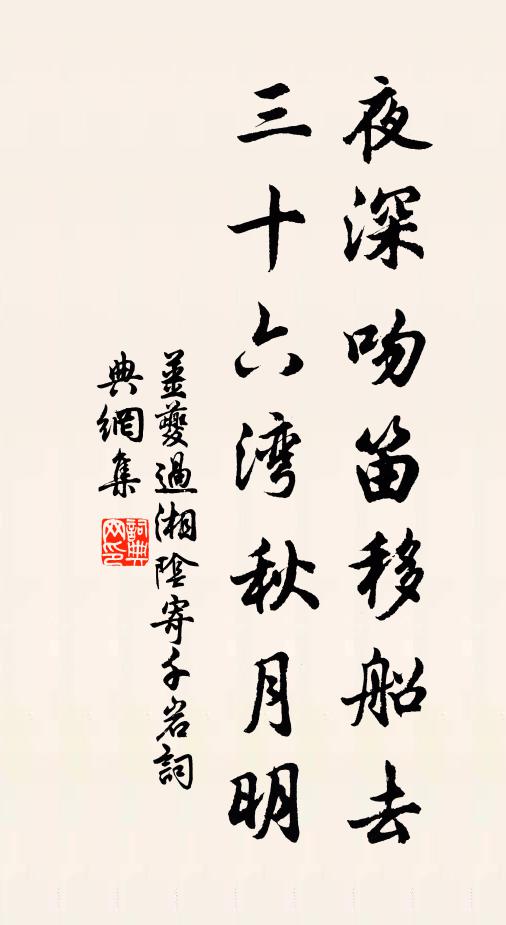 夜深吻笛移船去
三十六湾秋月明
姜夔過湘陰寄千岩詞
典網集
詞典网印